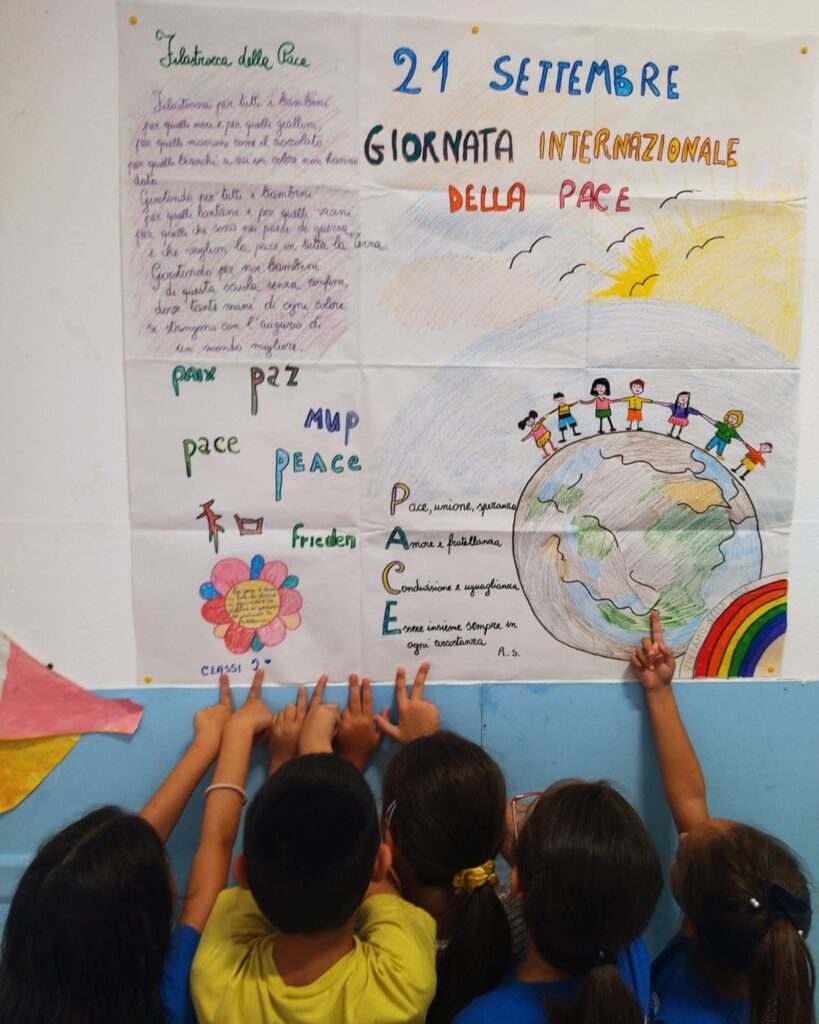 Filastrocca della Pace
Filastrocca per tutti i bambini
per quelli neri e per quelli giallini,
per quelli marroni come il cioccolato
per quelli bianchi a cui un colore non hanno
dato.
Girotondo per tutti i bambini
per quelli lontani e per quelli vicini
per quelli che sono nei paesi di guerra
e che vogliono la pace in tutta la Terra.
Girotondo per noi bambini
di questa scuola senza confini,
dove tante mani di ogni colore
si stringono con l'augurio di
un mondo migliore.
21 SETTEMBRE
GIORNATA INTERNAZIONALE
DELLA PACE
paix paz
мир
pace
PEACE
frieden
CLASSI 2e
Pace, unione, speranza
Amore e fratellanza
Condivisione e uguaglianza
Essere insieme sempre in
ogni circostanza
R.S.